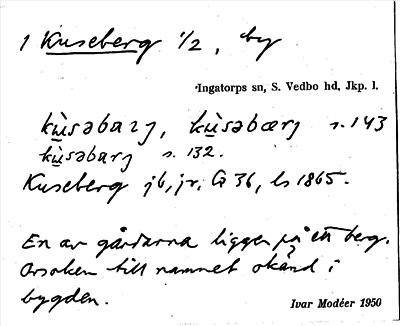 1 Kuseberg 1/2, by
Ingatorps sn, S. Vedbo hd, Jkp. l.
kùsəbarj, kùsəbærj s. 143
kùsəbarj s. 132.
Kuseberg jb, jr, G 36, ls 1865.
En av gårdarna ligger på ett berg.
Orsaken till namnet okänd i
bygden.
Ivar Modéer 1950